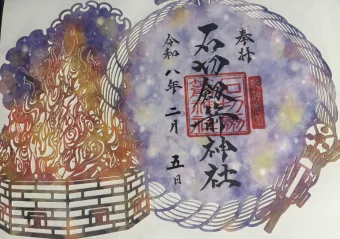 奉拝
石切劔箭神社
令和八年二月五日